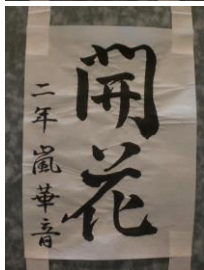 開花
二年 嵐華音